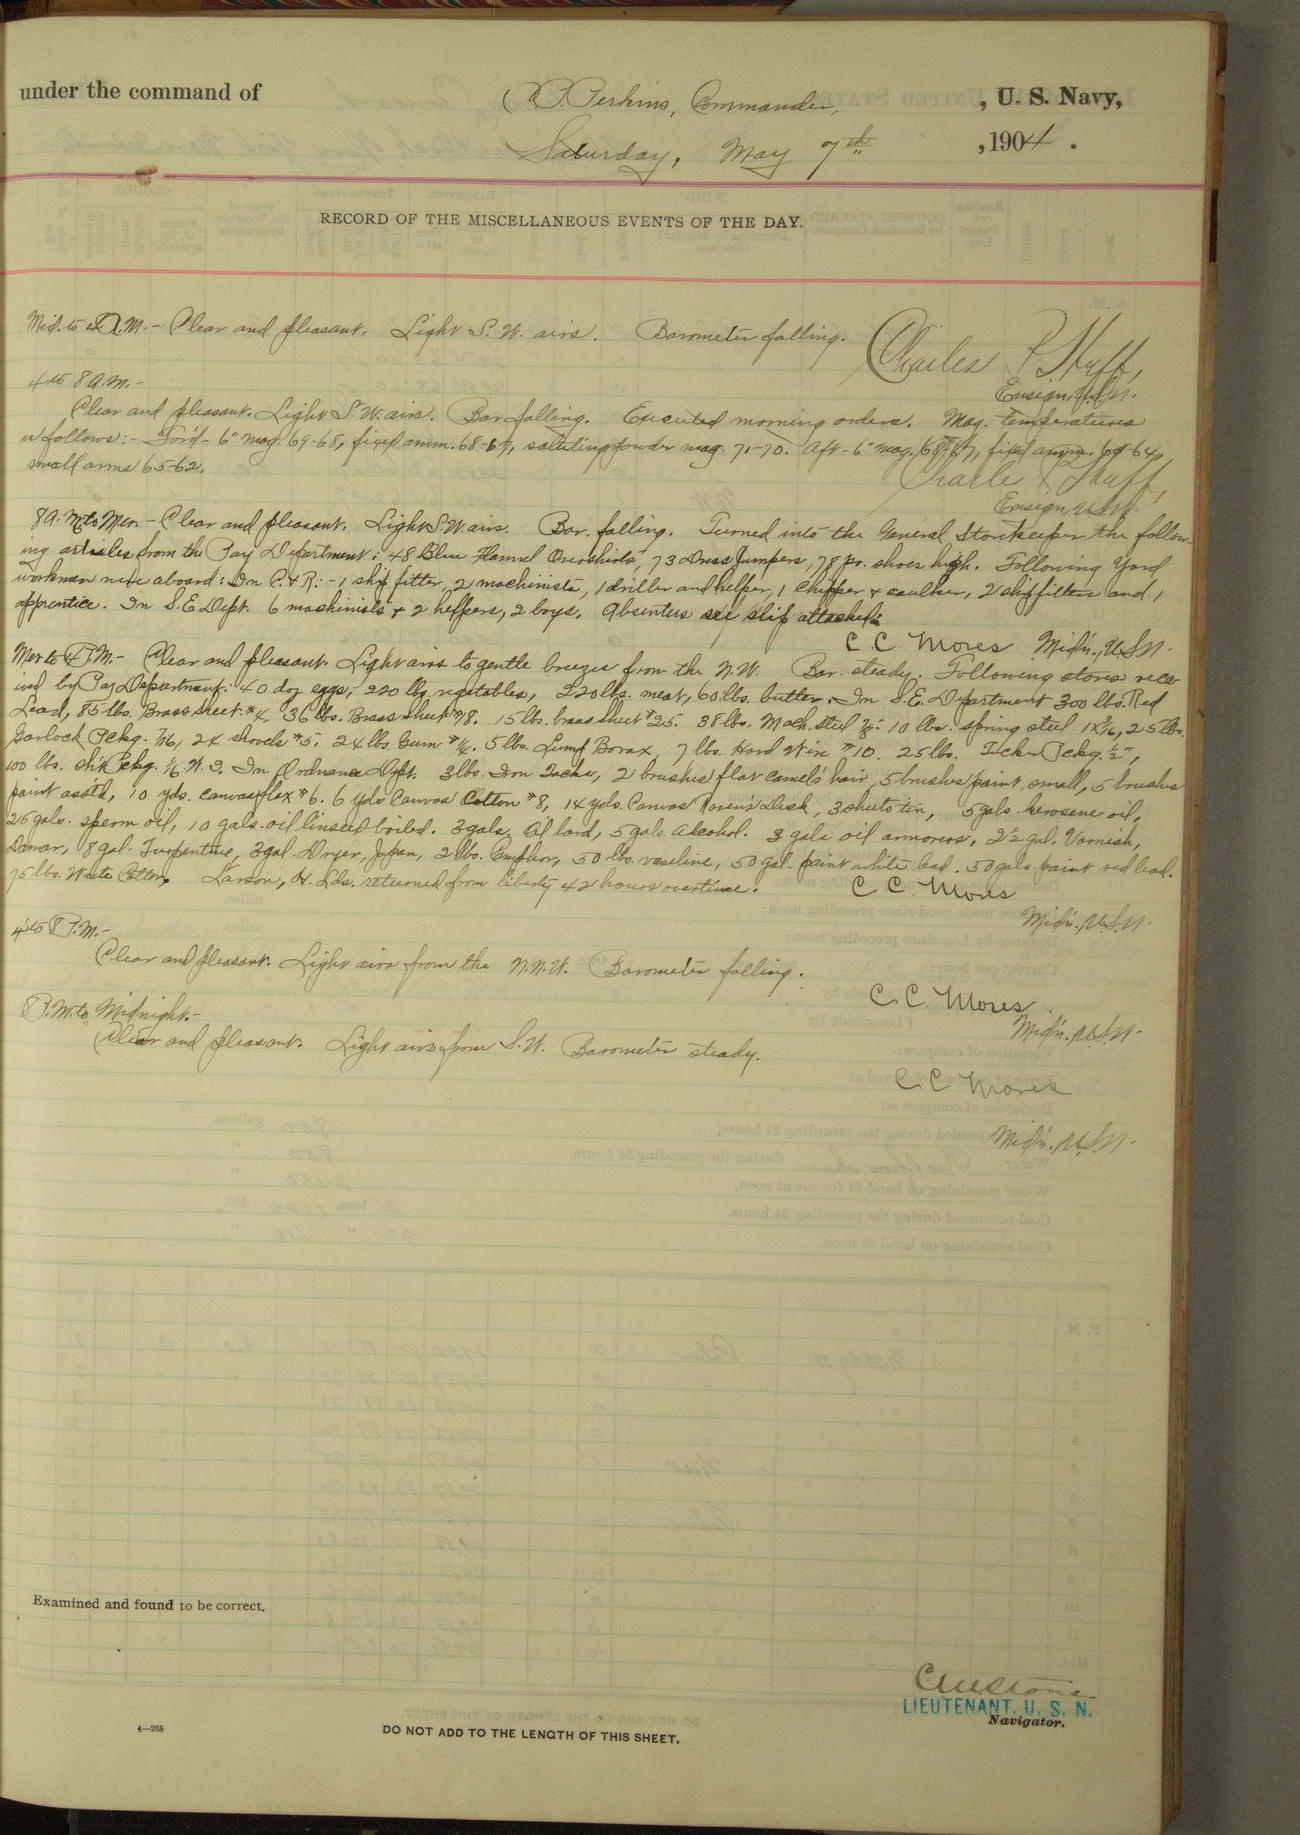 under the command of C. P. Perkins, Commander, , U. S. Navy,
Saturday, May 7th , 1904 .
RECORD OF THE MISCELLANEOUS EVENTS OF THE DAY.
Mid. to 4 A.M.- Clear and pleasant. Light S. W. airs. Barometer falling.
Charles P. Huff,
Ensign, U.S.N.
4 to 8 A.M.-
Clear and pleasant. Light S.W. airs. Bar falling. Executed morning orders. Mag. temperatures
as follows:- For'd- 6" mag. 69-68, fixed amm. 68-67, saluting powder mag. 71-70. Aft- 6" mag. 68-67, fixed amm. 69-64,
small arms 65-62.
Charles P. Huff,
Ensign, U.S.N.
8 A.M. to Mer.- Clear and pleasant. Light S.W. airs. Bar. falling. Turned into the General Storekeeper the follow-
ing articles from the Pay Department: 48 Blue Flannel Overshirts, 73 Dress Jumpers, 78 pr. shoes high. Following Yard
workmen were aboard: In C. & R.:- 1 ship fitter, 2 machinists, 1 driller and helper, 1 chipper & caulker, 2 shipfitters and 1
apprentice. In S.E. Dept. 6 machinists & 2 helpers, 2 boys. Absentees see slip attached.
C C Moses Mid'n., U.S.N.
Mer to 4 P.M.- Clear and pleasant. Light airs to gentle breezes from the N.W. Bar. steady. Following stores rece-
ived by Pay Department: 40 doz eggs, 220 lbs. vegetables, 220 lbs. meat, 60 lbs. butter. In S.E. Department 300 lbs. Red
Lead, 85 lbs. Brass sheet #4, 36 lbs. Brass sheet #18. 15 lbs. brass sheet #25. 38 lbs. Mach. steel 7/8. 10 lbs. spring steel 25 lbs.
Garlock Pckg. 7/16, 24 shovels #5. 24 lbs. Gum #1/4. 5 lbs. Lump Borax, 7 lbs. Hard Wire #10. 25 lbs. Tucks Pckg. 1/2",
100 lbs. Pckg. 1/16 In Ordnance Dept. 3 lbs. Iron Tacks, 2 brushes flat camel's hair, 5 brushes paint, small, 5 brushes
paint asst'd, 10 yds. canvas flax #6. 6 yds Canvas Cotton #8, 14 yds. Canvas Raven's Duck, 3 sheets tin, 5 gals. kerosene oil,
25 gals. sperm oil, 10 gals. oil linseed boiled. 3 gals. Oil lard, 5 gals. Alcohol. 3 gals oil armorers, 2½ gal. Varnish,
Damar, 8 gal. Turpentine, 3 gal. Dryer, Japan, 2 lbs. Camphor, 50 lbs. vaseline, 50 gal. paint white lead. 50 gals. paint red lead.
75 lbs. Waste Cotton. Larson, H. Lds. returned from liberty 42 hours overtime.
C C Moses
Mid'n., U.S.N.
4 to 8 P.M.-
Clear and pleasant. Light airs from the N.N.W. Barometer falling.
C C Moses
Mid'n., U.S.N.
8 P.M. to Midnight.-
Clear and pleasant. Light airs from S.W. Barometer steady.
C C Moses
Mid'n., U.S.N.
Examined and found to be correct.
LIEUTENANT, U. S. N.
Navigator.
4—268
DO NOT ADD TO THE LENGTH OF THIS SHEET.